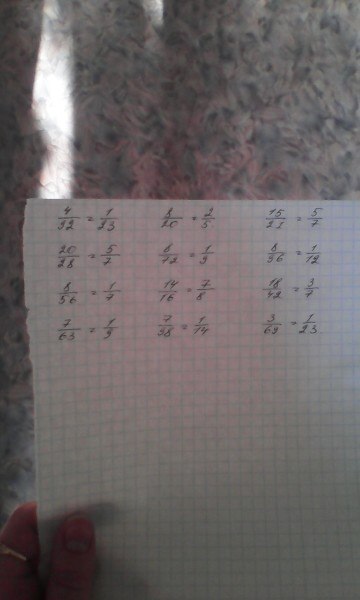 4/92 = 1/23 8/20 = 2/5 15/21 = 5/7
20/28 = 5/7 8/72 = 1/9 8/96 = 1/12
8/56 = 1/7 14/16 = 7/8 18/42 = 3/7
7/63 = 1/9 7/98 = 1/14 3/69 = 1/23